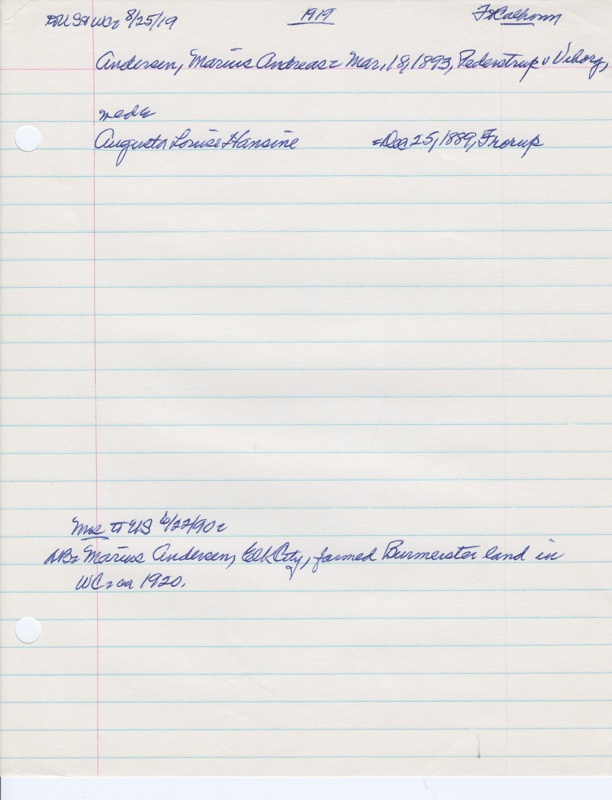 US & WC 8/25/19 1919 Ft Calhoun
Andersen, Marius Andreas = Mar. 18, 1893, Pederstrup v Viborg,
med
Augusta Louise Hansine = Dec 25, 1889, Frorup
Mrs to US 6/22/90
NB = Marius Andersen, Elk City, farmed Burmeister land in
WC = ca 1920.